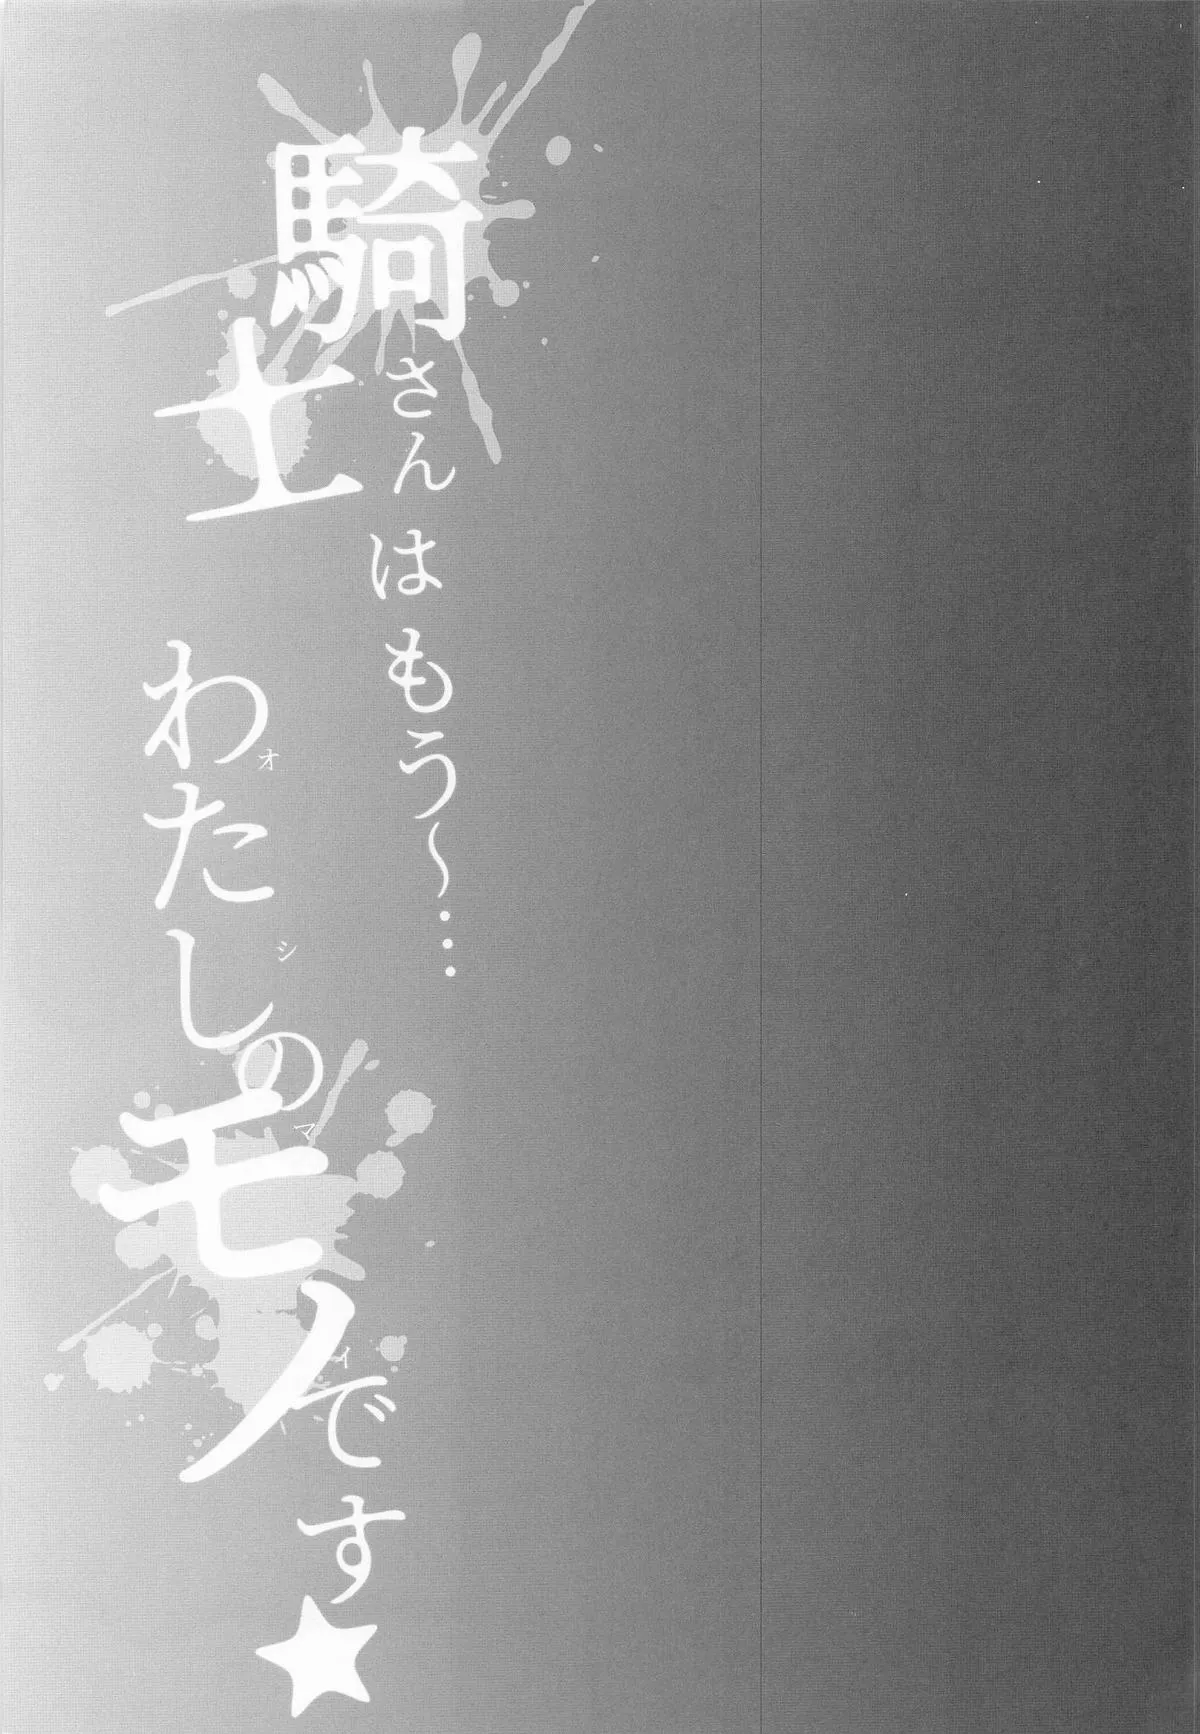 騎士さんはもう〜…
わたしのモノです★
オシマイ